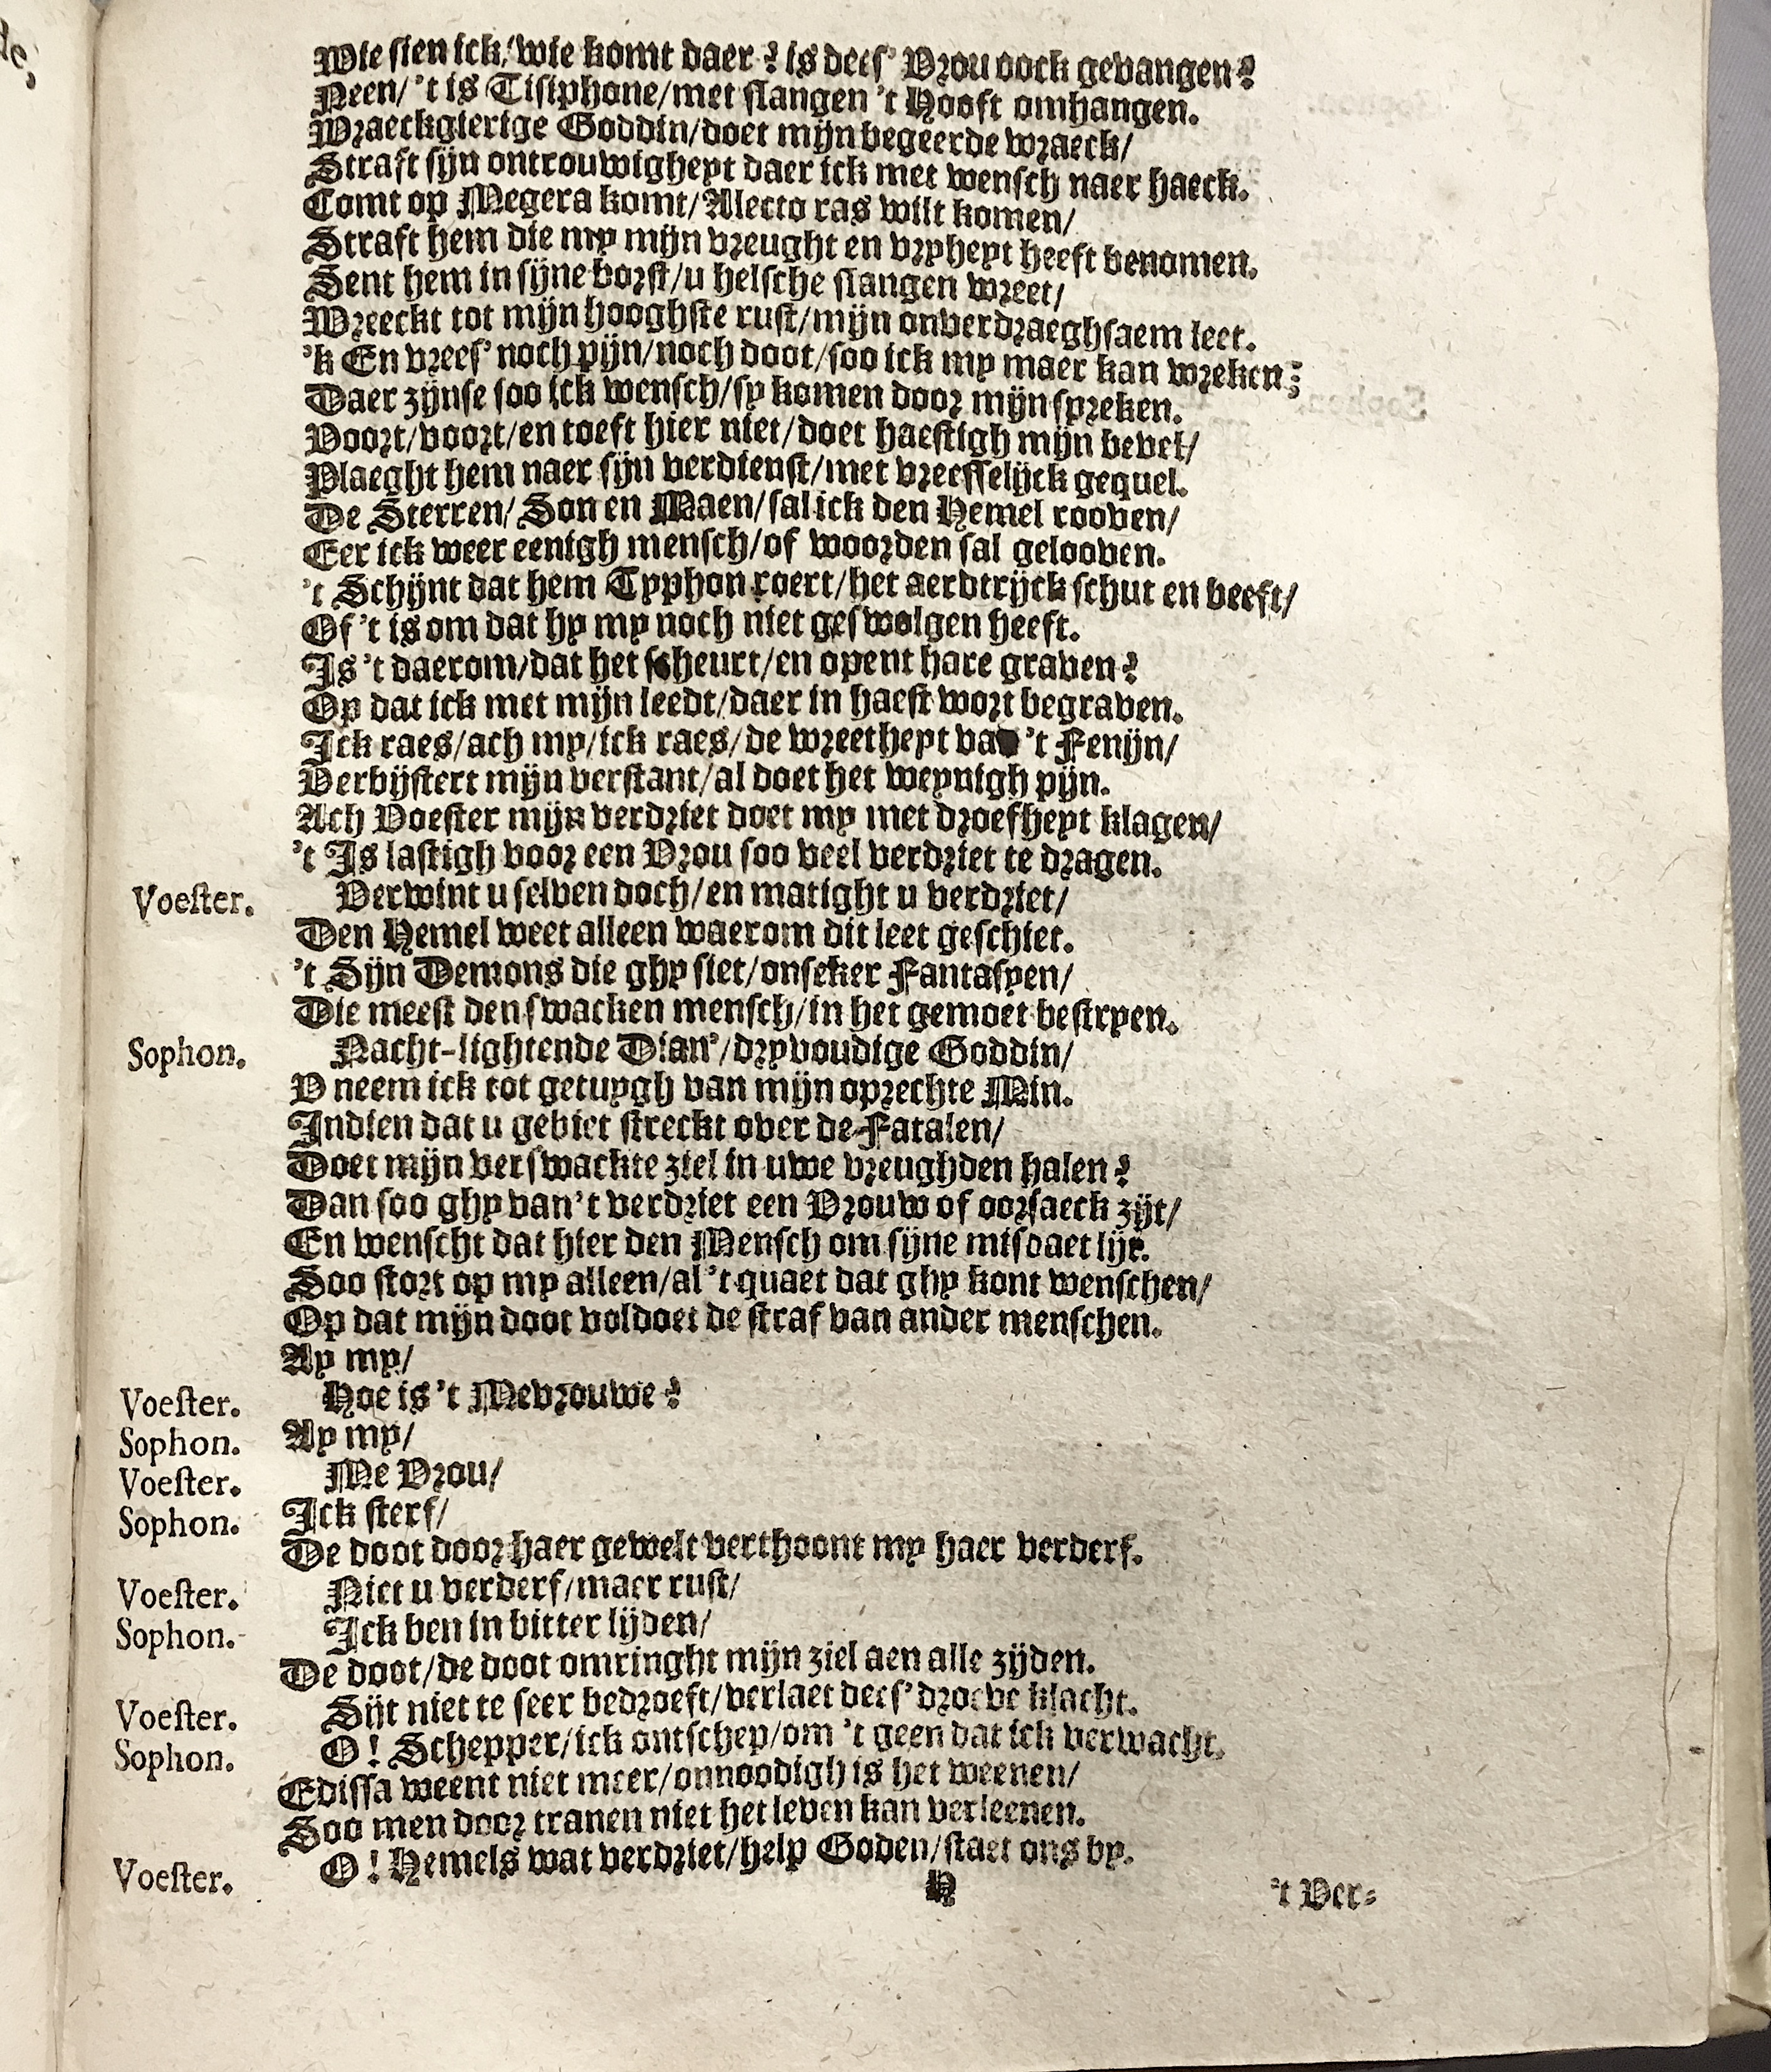 Wie sien ick/ wie komt daer? is dees' Vrou oock gevangen?
Neen/ 't is Tisiphone/ met slangen 't Hooft omhangen.
Wraeckgierige Goddin/ doet mijn begeerde wraeck/
Straft sijn ontrouwigheyt daer ick met wensch naer haeck.
Comt op Megera komt/ Alecto ras wilt komen/
Straft hem die my mijn vreught en vryheyt heeft benomen.
Sent hem in sijne borst/ u helsche slangen wreet/
Wreeckt tot mijn hooghste rust/ mijn onverdraeghsaem leet.
'k En vrees' noch pijn/ noch doot/ soo ick my maer kan wreken;
Daer zijnse soo ick wensch/ sy komen door mijn spreken.
Voort/ voort/ en toeft hier niet/ doet haestigh mijn bevel/
Plaeght hem naer sijn verdienst/ met vreesselijck gequel.
De Sterren/ Son en Maen/ sal ick den Hemel rooven/
Eer ick weer eenigh mensch/ of woorden sal gelooven.
't Schijnt dat hem Typhon roert/ het aerdtrijck schut en beeft/
Of 't is om dat hy my noch niet geswolgen heeft.
Is 't daerom/ dat het scheurt/ en opent hare graven?
Op dat ick met mijn leedt/ daer in haest wort begraven.
Ick raes/ ach my/ ick raes/ de wreetheyt van 't Fenijn/
Verbijstert mijn verstant/ al doet het weynigh pijn.
Ach Voester mijn verdriet doet my met droefheyt klagen/
't Is lastigh voor een Vrou soo veel verdriet te dragen.
Voester. Verwint u selven doch/ en matight u verdriet/
Den Hemel weet alleen waerom dit leet geschiet.
't Sijn Demons die ghy siet/ onseker Fantasyen/
Die meest den swacken mensch/ in het gemoet bestryen.
Sophon. Nacht-lightende Dian'/ dryvoudige Goddin/
V neem ick tot getuygh van mijn oprechte Min.
Indien dat u gebiet streckt over de Fatalen/
Doet mijn verswackte ziel in uwe vreughden halen?
Dan soo ghy van 't verdriet een Vrouw of oorsaeck zijt/
En wenscht dat hier den Mensch om sijne misdaet lijt.
Soo stort op my alleen/ al 't quaet dat ghy kont wenschen/
Op dat mijn doot voldoet de straf van ander menschen.
Ay my/
Voester. Hoe is 't Mevrouwe?
Sophon. Ay my/
Voester. Me Vrou/
Sophon. Ick sterf/
De doot door haer gewelt verthoont my haer verderf.
Voester. Niet u verderf/ maer rust/
Sophon. Ick ben in bitter lijden/
De doot/ de doot omringht mijn ziel aen alle zijden.
Voester. Sijt niet te seer bedroeft/ verlaet dees' droeve klacht.
Sophon. O! Schepper/ ick ontschep/ om 't geen dat ick verwacht.
Edissa weent niet meer/ onnoodigh is het weenen/
Soo men door tranen niet het leven kan verleenen.
Voester. O! Hemels wat verdriet/ help Goden/ staet ons by.
H 't Ver-